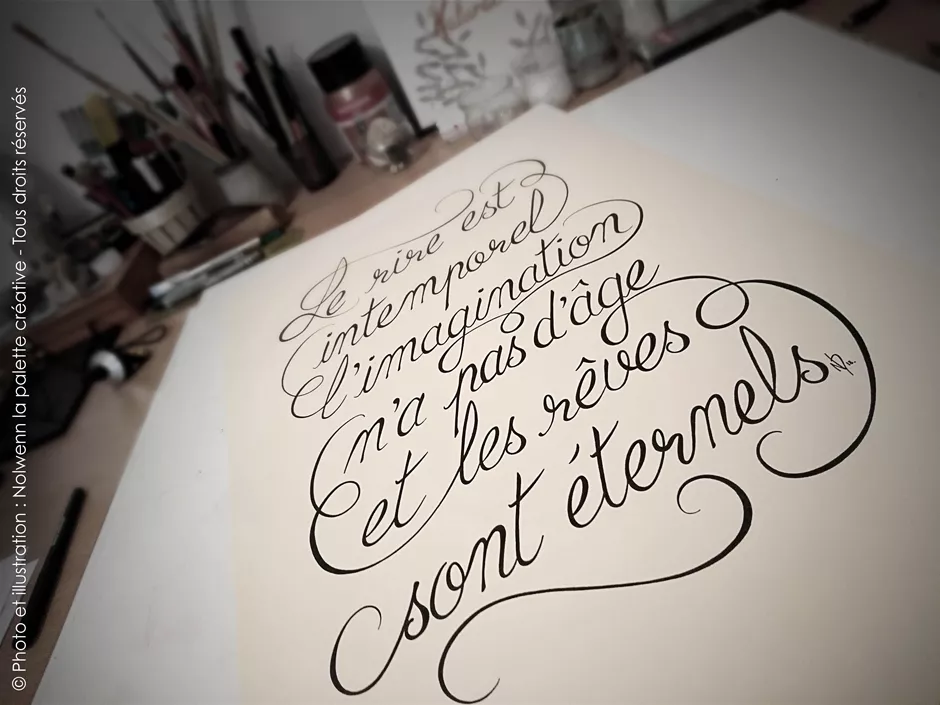 Le rire est
intemporel
l'imagination
n'a pas d'âge
et les rêves
sont éternels
© Photo et illustration : Nolwenn la palette créative - Tous droits réservés